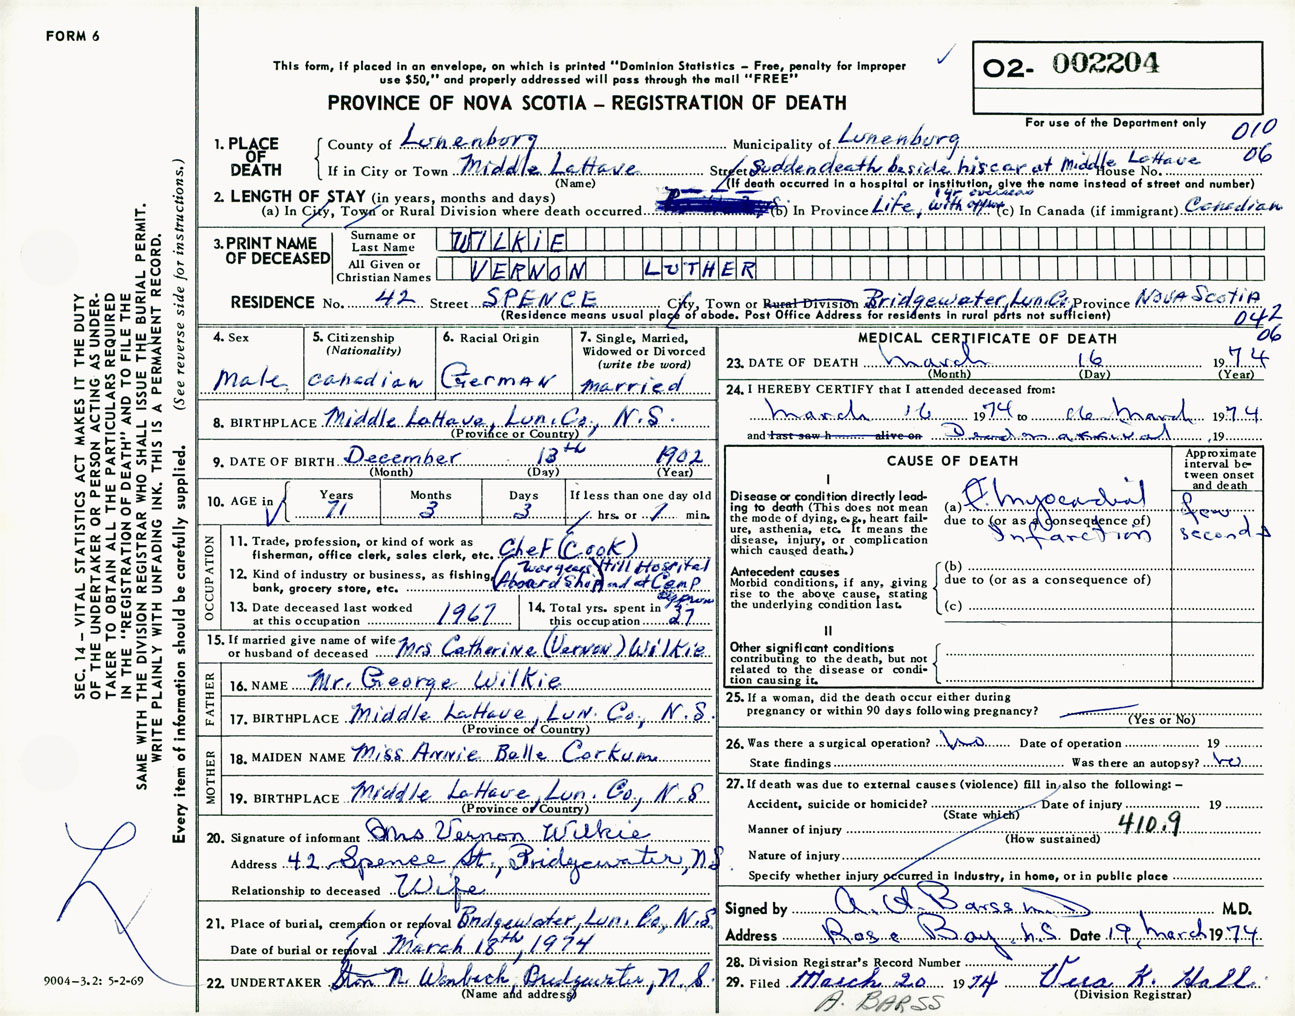 FORM 6
This form, if placed in an envelope, on which is printed "Dominion Statistics – Free, penalty for improper
use $50," and properly addressed will pass through the mail "FREE"
PROVINCE OF NOVA SCOTIA – REGISTRATION OF DEATH
O2- 002204
For use of the Department only
010
06
1. PLACE OF DEATH
County of Lunenburg Municipality of Lunenburg
If in City or Town Middle LaHave Street Sudden death beside his car at Middle LaHave House No.
(Name) (If death occurred in a hospital or institution, give the name instead of street and number)
2. LENGTH OF STAY (in years, months and days)
(a) In City, Town or Rural Division where death occurred (b) In Province Life, with 1 yr overseas (c) In Canada (if immigrant) Canadian
3. PRINT NAME OF DECEASED
Surname or Last Name WILKIE
All Given or Christian Names VERNON LUTHER
RESIDENCE No. 42 Street SPENCE City, Town or Rural Division Bridgewater, Lun. Co, Province NOVA SCOTIA
(Residence means usual place of abode. Post Office Address for residents in rural parts not sufficient)
042
06
4. Sex
Male
5. Citizenship
(Nationality)
Canadian
6. Racial Origin
German
7. Single, Married,
Widowed or Divorced
(write the word)
married
8. BIRTHPLACE Middle LaHave, Lun. Co., N.S.
(Province or Country)
9. DATE OF BIRTH December 13th 1902
(Month) (Day) (Year)
10. AGE in
Years Months Days If less than one day old
71 3 3 hrs. or min.
OCCUPATION
11. Trade, profession, or kind of work as
fisherman, office clerk, sales clerk, etc. Chef (Cook)
12. Kind of industry or business, as fishing,
bank, grocery store, etc. (war years Hill Hospital
Aboard Ship) and at Camp
13. Date deceased last worked
at this occupation 1967
14. Total yrs. spent in
this occupation 27
15. If married give name of wife
or husband of deceased Mrs Catherine (Vernon) Wilkie
FATHER
16. NAME Mr. George Wilkie
17. BIRTHPLACE Middle LaHave, Lun. Co., N.S.
(Province or Country)
MOTHER
18. MAIDEN NAME Miss Annie Belle Corkum
19. BIRTHPLACE Middle LaHave, Lun. Co, N.S
(Province or Country)
20. Signature of informant Mrs Vernon Wilkie
Address 42 Spence St, Bridgewater, N.S.
Relationship to deceased Wife
21. Place of burial, cremation or removal Bridgewater, Lun. Co, N.S.
Date of burial or removal March 18th, 1974
22. UNDERTAKER Bridgewater, N.S.
(Name and address)
MEDICAL CERTIFICATE OF DEATH
23. DATE OF DEATH March 16 1974
(Month) (Day) (Year)
24. I HEREBY CERTIFY that I attended deceased from:
March 16 1974 to 16 March 1974
and last saw h alive on Dead on arrival, 19
CAUSE OF DEATH
Approximate
interval be-
tween onset
and death
I
Disease or condition directly lead-
ing to death (This does not mean
the mode of dying, e.g., heart fail-
ure, asthenia, etc. It means the
disease, injury, or complication
which caused death.)
(a) Myocardial
due to (or as a consequence of)
Infarction
few
seconds
Antecedent causes
Morbid conditions, if any, giving
rise to the above cause, stating
the underlying condition last.
(b)
due to (or as a consequence of)
(c)
II
Other significant conditions
contributing to the death, but not
related to the disease or condi-
tion causing it.
25. If a woman, did the death occur either during
pregnancy or within 90 days following pregnancy?
(Yes or No)
26. Was there a surgical operation? No Date of operation 19
State findings Was there an autopsy? no
27. If death was due to external causes (violence) fill in also the following: –
Accident, suicide or homicide? Date of injury 19
(State which)
Manner of injury 410.9
(How sustained)
Nature of injury
Specify whether injury occurred in industry, in home, or in public place
Signed by A. H. Barss M.D.
Address Rose Bay, N.S. Date 19, March 1974
28. Division Registrar's Record Number
29. Filed March 20 1974 Vera K. Hall
(Division Registrar)
A. BARSS
SEC. 14 – VITAL STATISTICS ACT MAKES IT THE DUTY
OF THE UNDERTAKER OR PERSON ACTING AS UNDER-
TAKER TO OBTAIN ALL THE PARTICULARS REQUIRED
IN THE "REGISTRATION OF DEATH" AND TO FILE THE
SAME WITH THE DIVISION REGISTRAR WHO SHALL ISSUE THE BURIAL PERMIT.
WRITE PLAINLY WITH UNFADING INK. THIS IS A PERMANENT RECORD.
Every item of information should be carefully supplied. (See reverse side for instructions.)
9004-3.2: 5-2-69